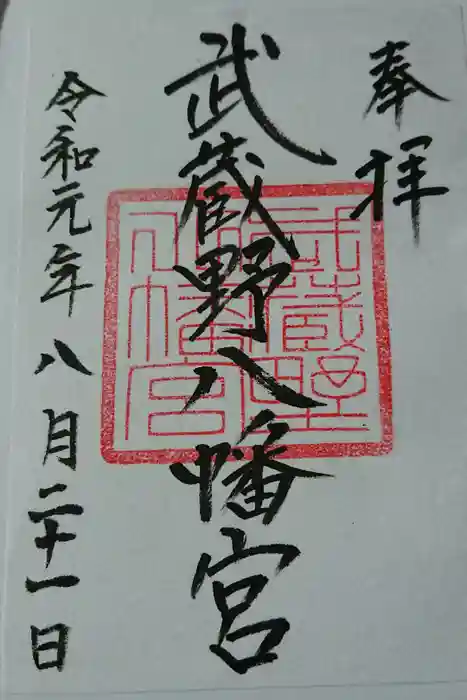 奉拝
武蔵野八幡宮
武蔵野
八幡宮
令和元年八月二十一日